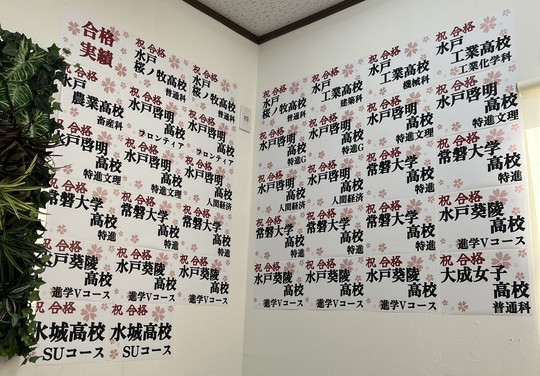 合格
実績
祝 合格
水戸
桜ノ牧高校
普通科
祝 合格
水戸
桜ノ牧高校
普通科
水戸
農業高校
畜産科
祝 合格
水戸啓明
高校
フロンティア
祝 合格
水戸啓明
高校
フロンティア
祝 合格
水戸啓明
高校
特進文理
祝 合格
水戸啓明
高校
特進文理
祝 合格
水戸啓明
高校
人間経済
祝 合格
常磐大学
高校
特進
祝 合格
常磐大学
高校
特進
祝 合格
常磐大学
高校
特進
祝 合格
水戸葵陵
高校
祝 合格
水戸葵陵
高校
進学Vコース
祝 合格
水戸葵陵
高校
進学Vコース
祝 合格
水城高校
SUコース
祝 合格
水城高校
SUコース
祝 合格
水戸
桜ノ牧高校
普通科
祝 合格
水戸
工業高校
建築科
祝 合格
水戸
工業高校
機械科
祝 合格
水戸
工業高校
工業化学科
祝 合格
水戸啓明
高校
特進G
祝 合格
水戸啓明
高校
特進G
祝 合格
水戸啓明
高校
特進文理
祝 合格
水戸啓明
高校
特進文理
祝 合格
水戸啓明
高校
特進文理
祝 合格
水戸啓明
高校
人間経済
祝 合格
常磐大学
高校
特進
祝 合格
常磐大学
高校
特進
祝 合格
常磐大学
高校
特進
祝 合格
常磐大学
高校
特進
祝 合格
常磐大学
高校
特進
祝 合格
水戸葵陵
高校
進学Vコース
祝 合格
水戸葵陵
高校
進学Vコース
祝 合格
水戸葵陵
高校
進学Vコース
祝 合格
水戸葵陵
高校
進学Vコース
祝 合格
大成女子
高校
普通科